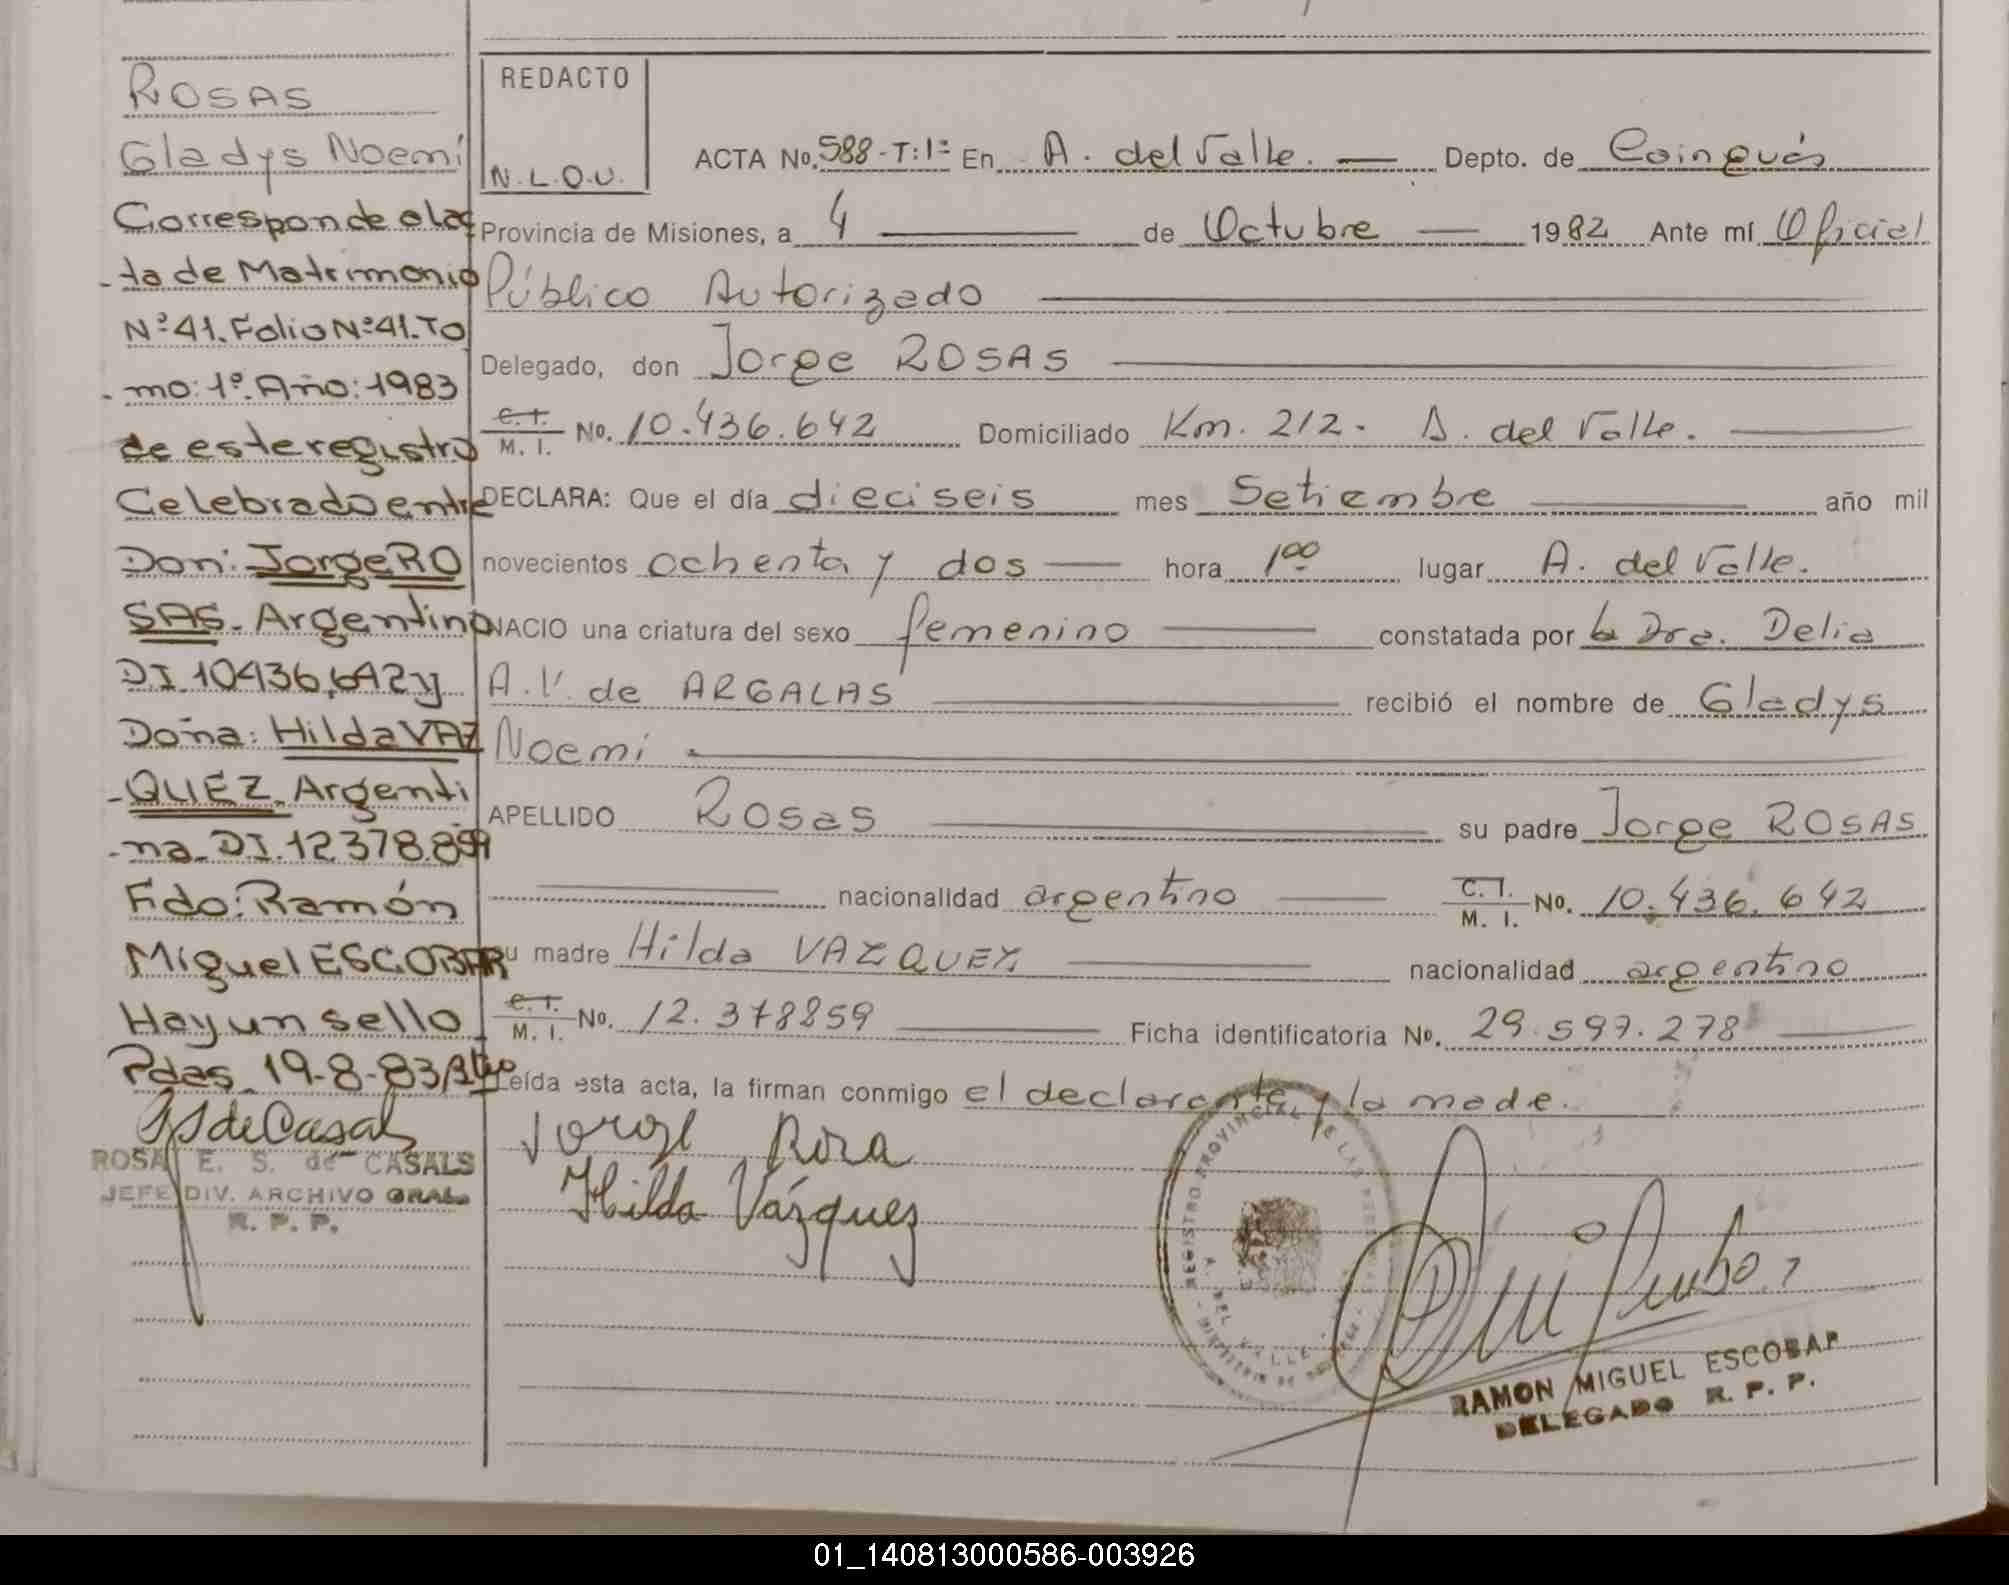 ROSAS
Gladys Noemí
Corresponde al ac
-ta de Matrimonio
Nº41. Folio Nº41. To
-mo: 1º. Año: 1983
de este registro
Celebrado entre
Don: Jorge RO
SAS. Argentino
DI 10436,642 y
Doña: Hilda VAZ
-QUEZ. Argenti
-na. D.I. 12.378.859
Fdo: Ramón
Miguel ESCOBAR
Hay un sello
Pdas. 19-8-83
ROSA E. S. de CASALS
JEFE DIV. ARCHIVO GRAL.
R. P. P.
REDACTO
N.L.O.U.
ACTA No. 588-T:1º En A. del Valle. Depto. de Cainguás
Provincia de Misiones, a 4 de Octubre 1982 Ante mí Oficial
Público Autorizado
Delegado, don Jorge ROSAS
C. I. / M. I. No. 10.436.642 Domiciliado Km. 212. A. del Valle.
DECLARA: Que el día dieciseis mes Setiembre año mil
novecientos ochenta y dos hora 1,00 lugar A. del Valle.
NACIO una criatura del sexo femenino constatada por la Dra. Delia
A.V. de ARGALAS recibió el nombre de Gladys
Noemí
APELLIDO Rosas su padre Jorge ROSAS
nacionalidad argentino C. I. / M. I. No. 10.436.642
su madre Hilda VAZQUEZ nacionalidad argentino
C. I. / M. I. No. 12.378859 Ficha identificatoria No. 29.597.278
Leída esta acta, la firman conmigo el declarante y la made.
Jorge Rosa
Hilda Vázquez
REGISTRO PROVINCIAL DE LAS PERSONAS
A. DEL VALLE
RAMON MIGUEL ESCOBAR
DELEGADO R. P. P.
01_140813000586-003926